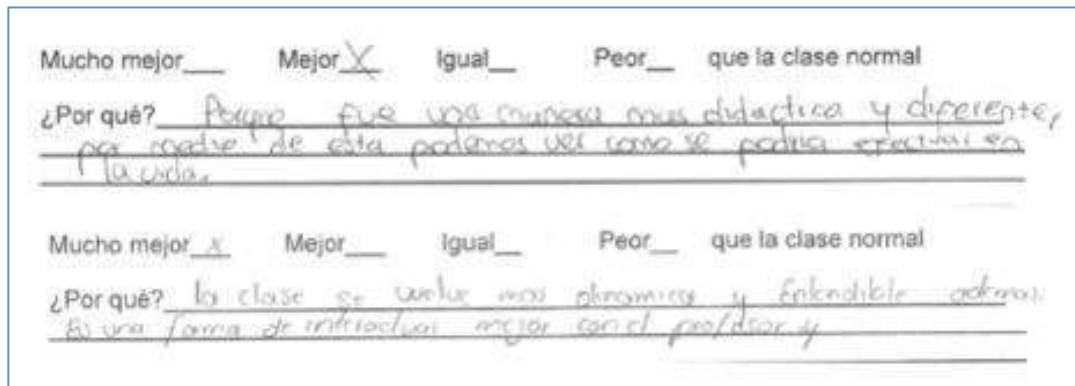 Mucho mejor___ Mejor_X_ Igual__ Peor__ que la clase normal
¿Por qué? Porque fue una manera mas didactica y diferente,
por medio de esta podemos ver como se podria efectuar en
la vida.
Mucho mejor_x_ Mejor___ Igual__ Peor__ que la clase normal
¿Por qué? la clase se vuelve mas dinamica y Entendible ademas
Es una forma de interactuar mejor con el profesor y